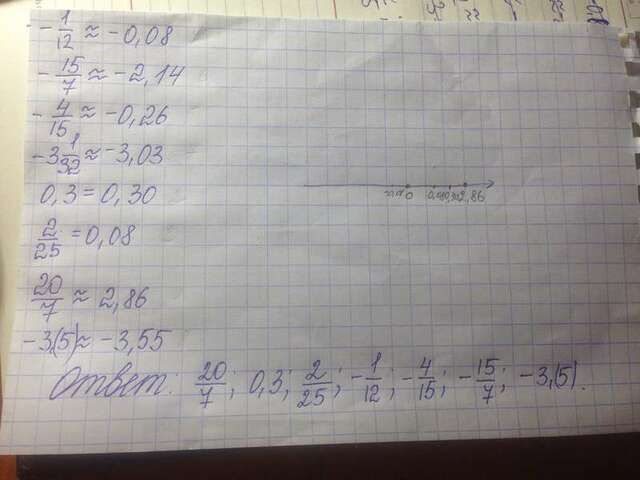 -1/12 ≈ -0,08
-15/7 ≈ -2,14
-4/15 ≈ -0,26
-3 1/32 ≈ -3,03
0,3 = 0,30
2/25 = 0,08
20/7 ≈ 2,86
-3,(5) ≈ -3,55
0 2,86
Ответ: 20/7; 0,3; 2/25; -1/12; -4/15; -15/7; -3,(5).